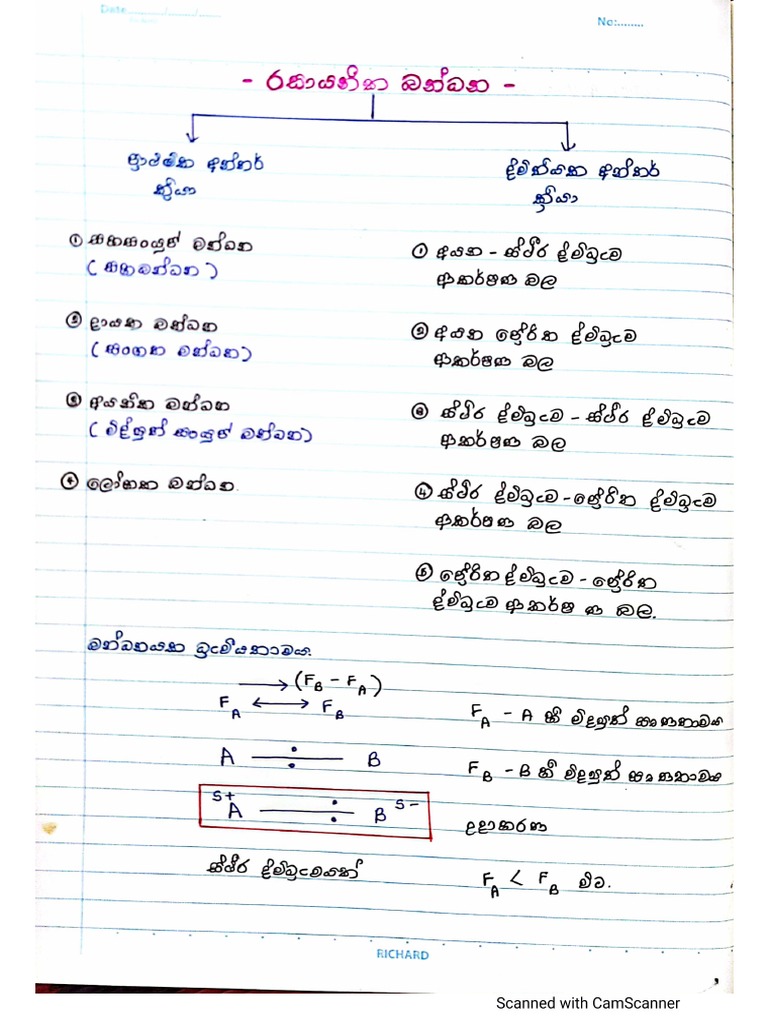 Date
No:........
- රසායනික බන්ධන -
ප්‍රාථමික අන්තර්
ක්‍රියා
ද්විතීයික අන්තර්
ක්‍රියා
① සහසංයුජ බන්ධන
( සහබන්ධන )
② දායක බන්ධන
( සංගත බන්ධන)
③ අයනික බන්ධන
( විද්‍යුත් සංයුජ බන්ධන)
④ ලෝහක බන්ධන
① අයන - ස්ථිර ද්විධ්‍රැව
ආකර්ෂණ බල
② අයන ප්‍රේරිත ද්විධ්‍රැව
ආකර්ෂණ බල
③ ස්ථිර ද්විධ්‍රැව - ස්ථිර ද්විධ්‍රැව
ආකර්ෂණ බල
④ ස්ථිර ද්විධ්‍රැව - ප්‍රේරිත ද්විධ්‍රැව
ආකර්ෂණ බල
⑤ ප්‍රේරිත ද්විධ්‍රැව - ප්‍රේරිත
ද්විධ්‍රැව ආකර්ෂණ බල.
බන්ධනයක ධ්‍රැවීයතාවය.
(F_B - F_A)
F_A ⟷ F_B
F_A - A හි විද්‍යුත් සෘණතාවය
A —— B
F_B - B හි විද්‍යුත් සෘණතාවය
S+ A —— B S-
උදාකරණ
ස්ථිර ද්විධ්‍රැවයක්
F_A < F_B විට.
RICHARD
Scanned with CamScanner